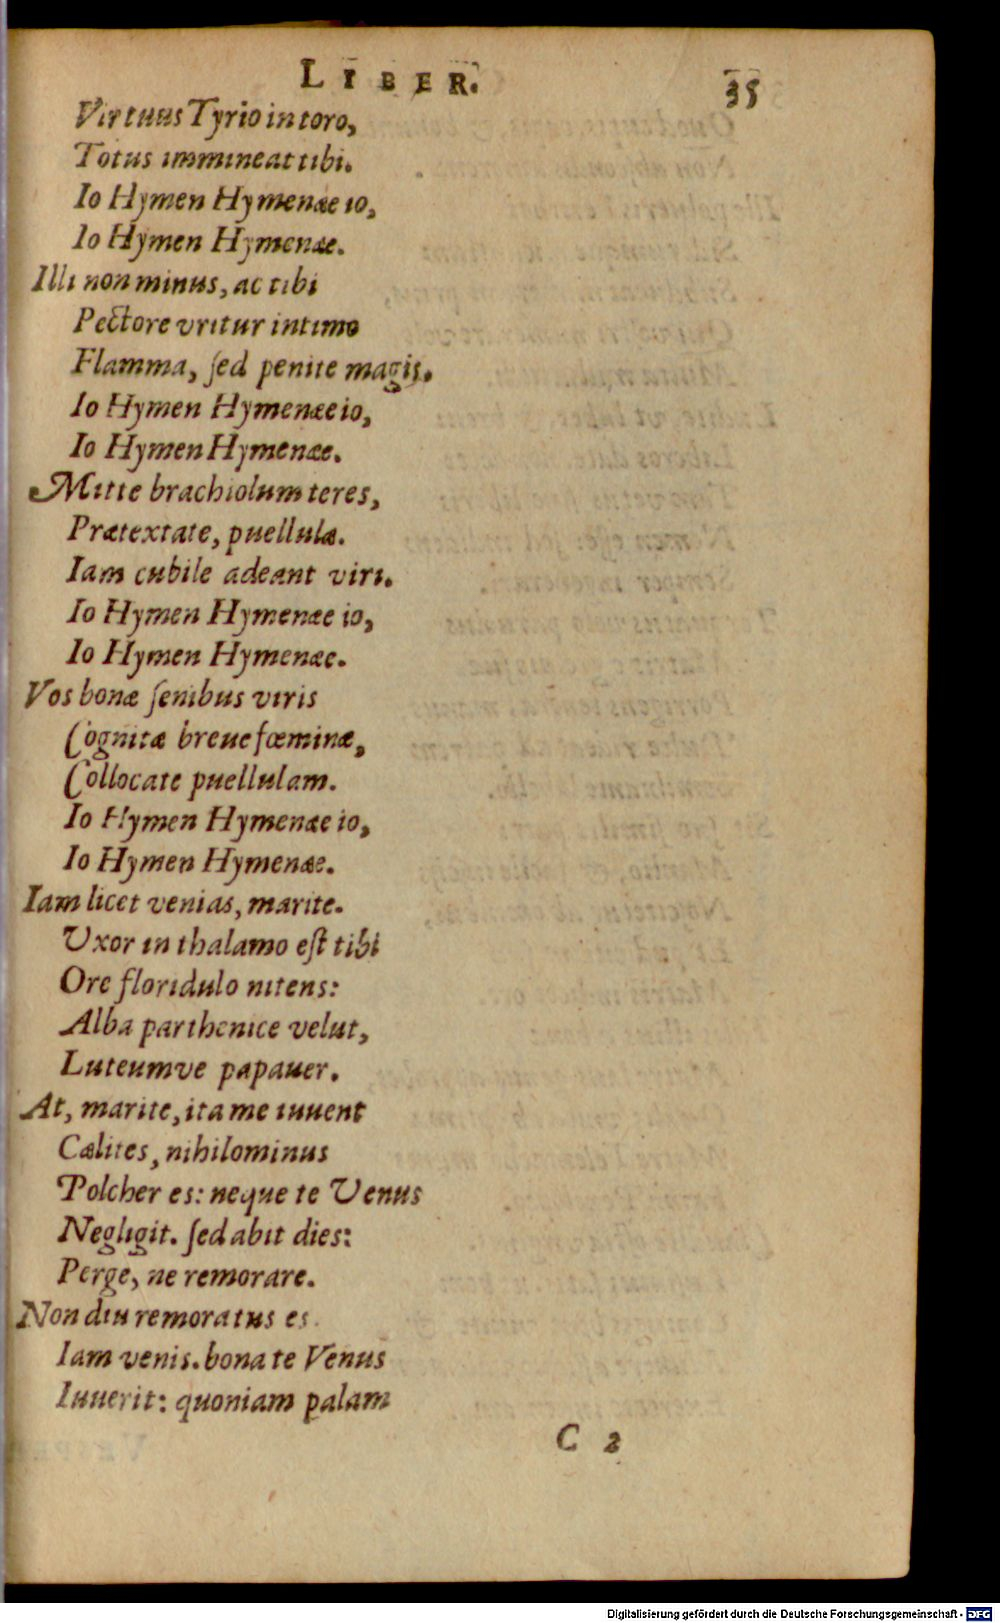 LIBER. 35
Virtuus Tyrio in toro,
Totus immineat tibi.
Io Hymen Hymenæe io,
Io Hymen Hymenæe.
Illi non minus, ac tibi
Pectore vritur intimo
Flamma, ſed penite magis.
Io Hymen Hymenæe io,
Io Hymen Hymenæe.
Mitte brachiolum teres,
Prætextate, puellulæ.
Iam cubile adeant viri.
Io Hymen Hymenæe io,
Io Hymen Hymenæe.
Vos bonæ ſenibus viris
Cognitæ breue fœminæ,
Collocate puellulam.
Io Hymen Hymenæe io,
Io Hymen Hymenæe.
Iam licet venias, marite.
Vxor in thalamo eſt tibi
Ore floridulo nitens:
Alba parthenice velut,
Luteumve papauer.
At, marite, ita me iuuent
Cælites, nihilominus
Polcher es: neque te Venus
Negligit. ſed abit dies:
Perge, ne remorare.
Non diu remoratus es.
Iam venis. bona te Venus
Iuuerit: quoniam palam
C 2
Digitalisierung gefördert durch die Deutsche Forschungsgemeinschaft - DFG